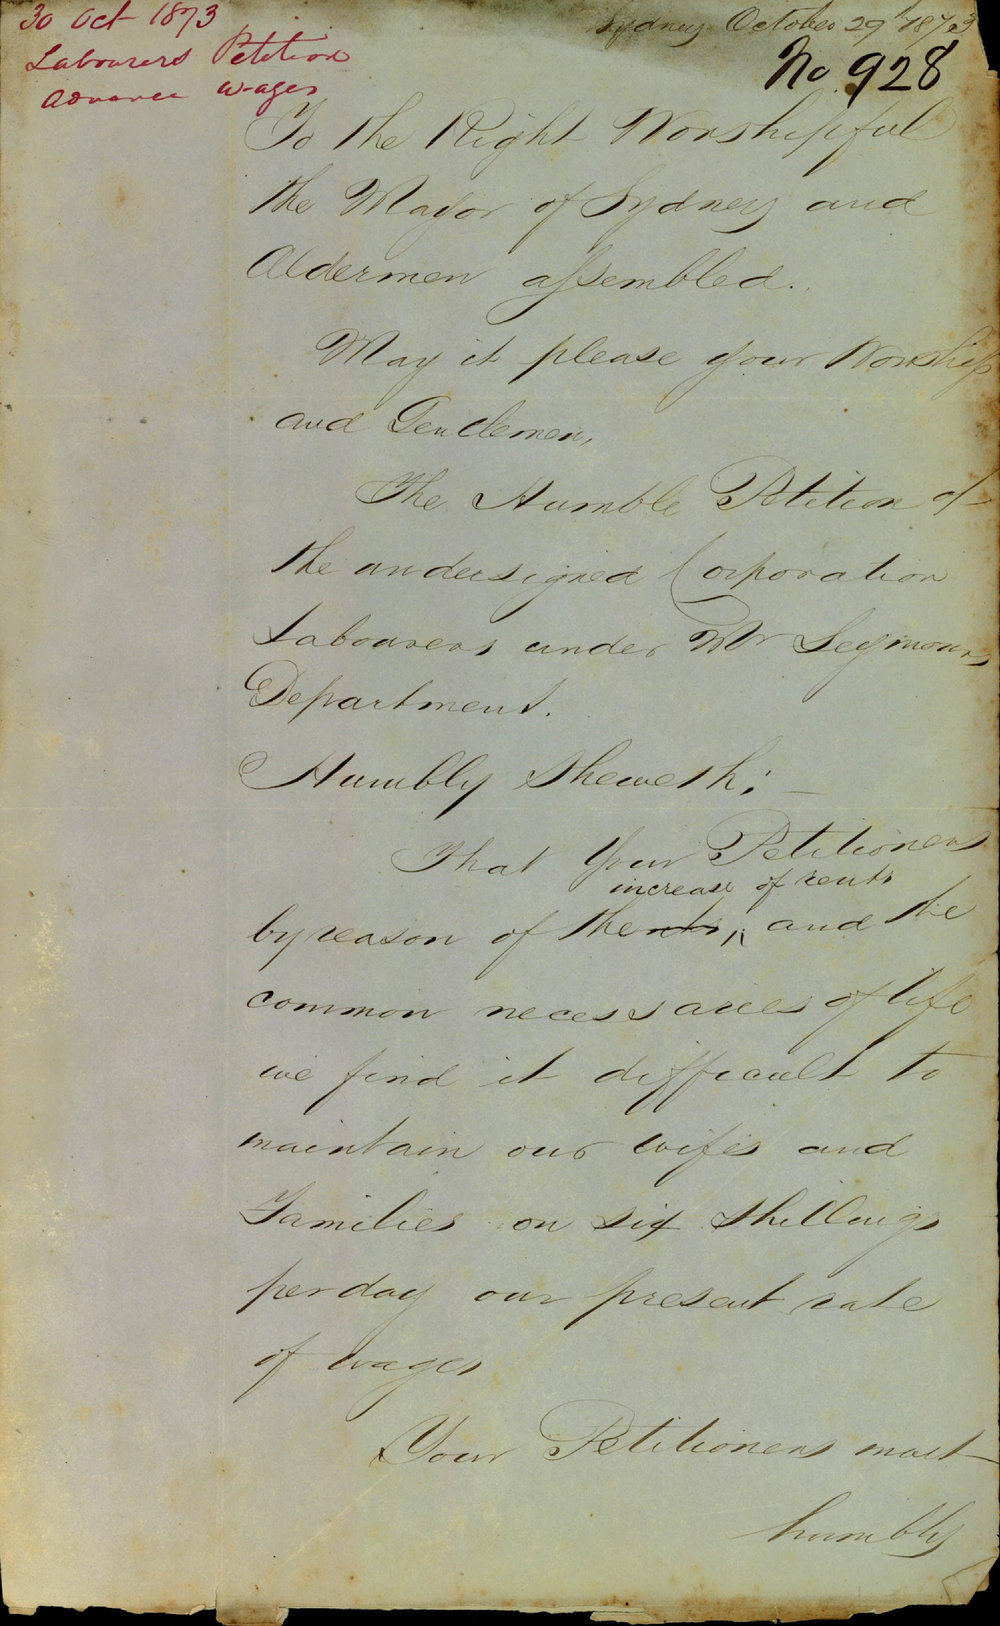 30 Oct 1873
Labourers Petition
Advance wages
Sydney October 29th 1873
No. 928
To the Right Worshipful
the Mayor of Sydney and
Aldermen assembled.
May it please your Worship
and Gentlemen,
The Humble Petition of
the undersigned Corporation
Labourers under Mr Seymours
Department.
Humbly Sheweth; —
That Your Petitioners
increase of rents
by reason of the rents, and the
common necessaries of life
we find it difficult to
maintain our wifes and
Families on six shillings
per day our present rate
of wages
Your Petitioners most
humbly